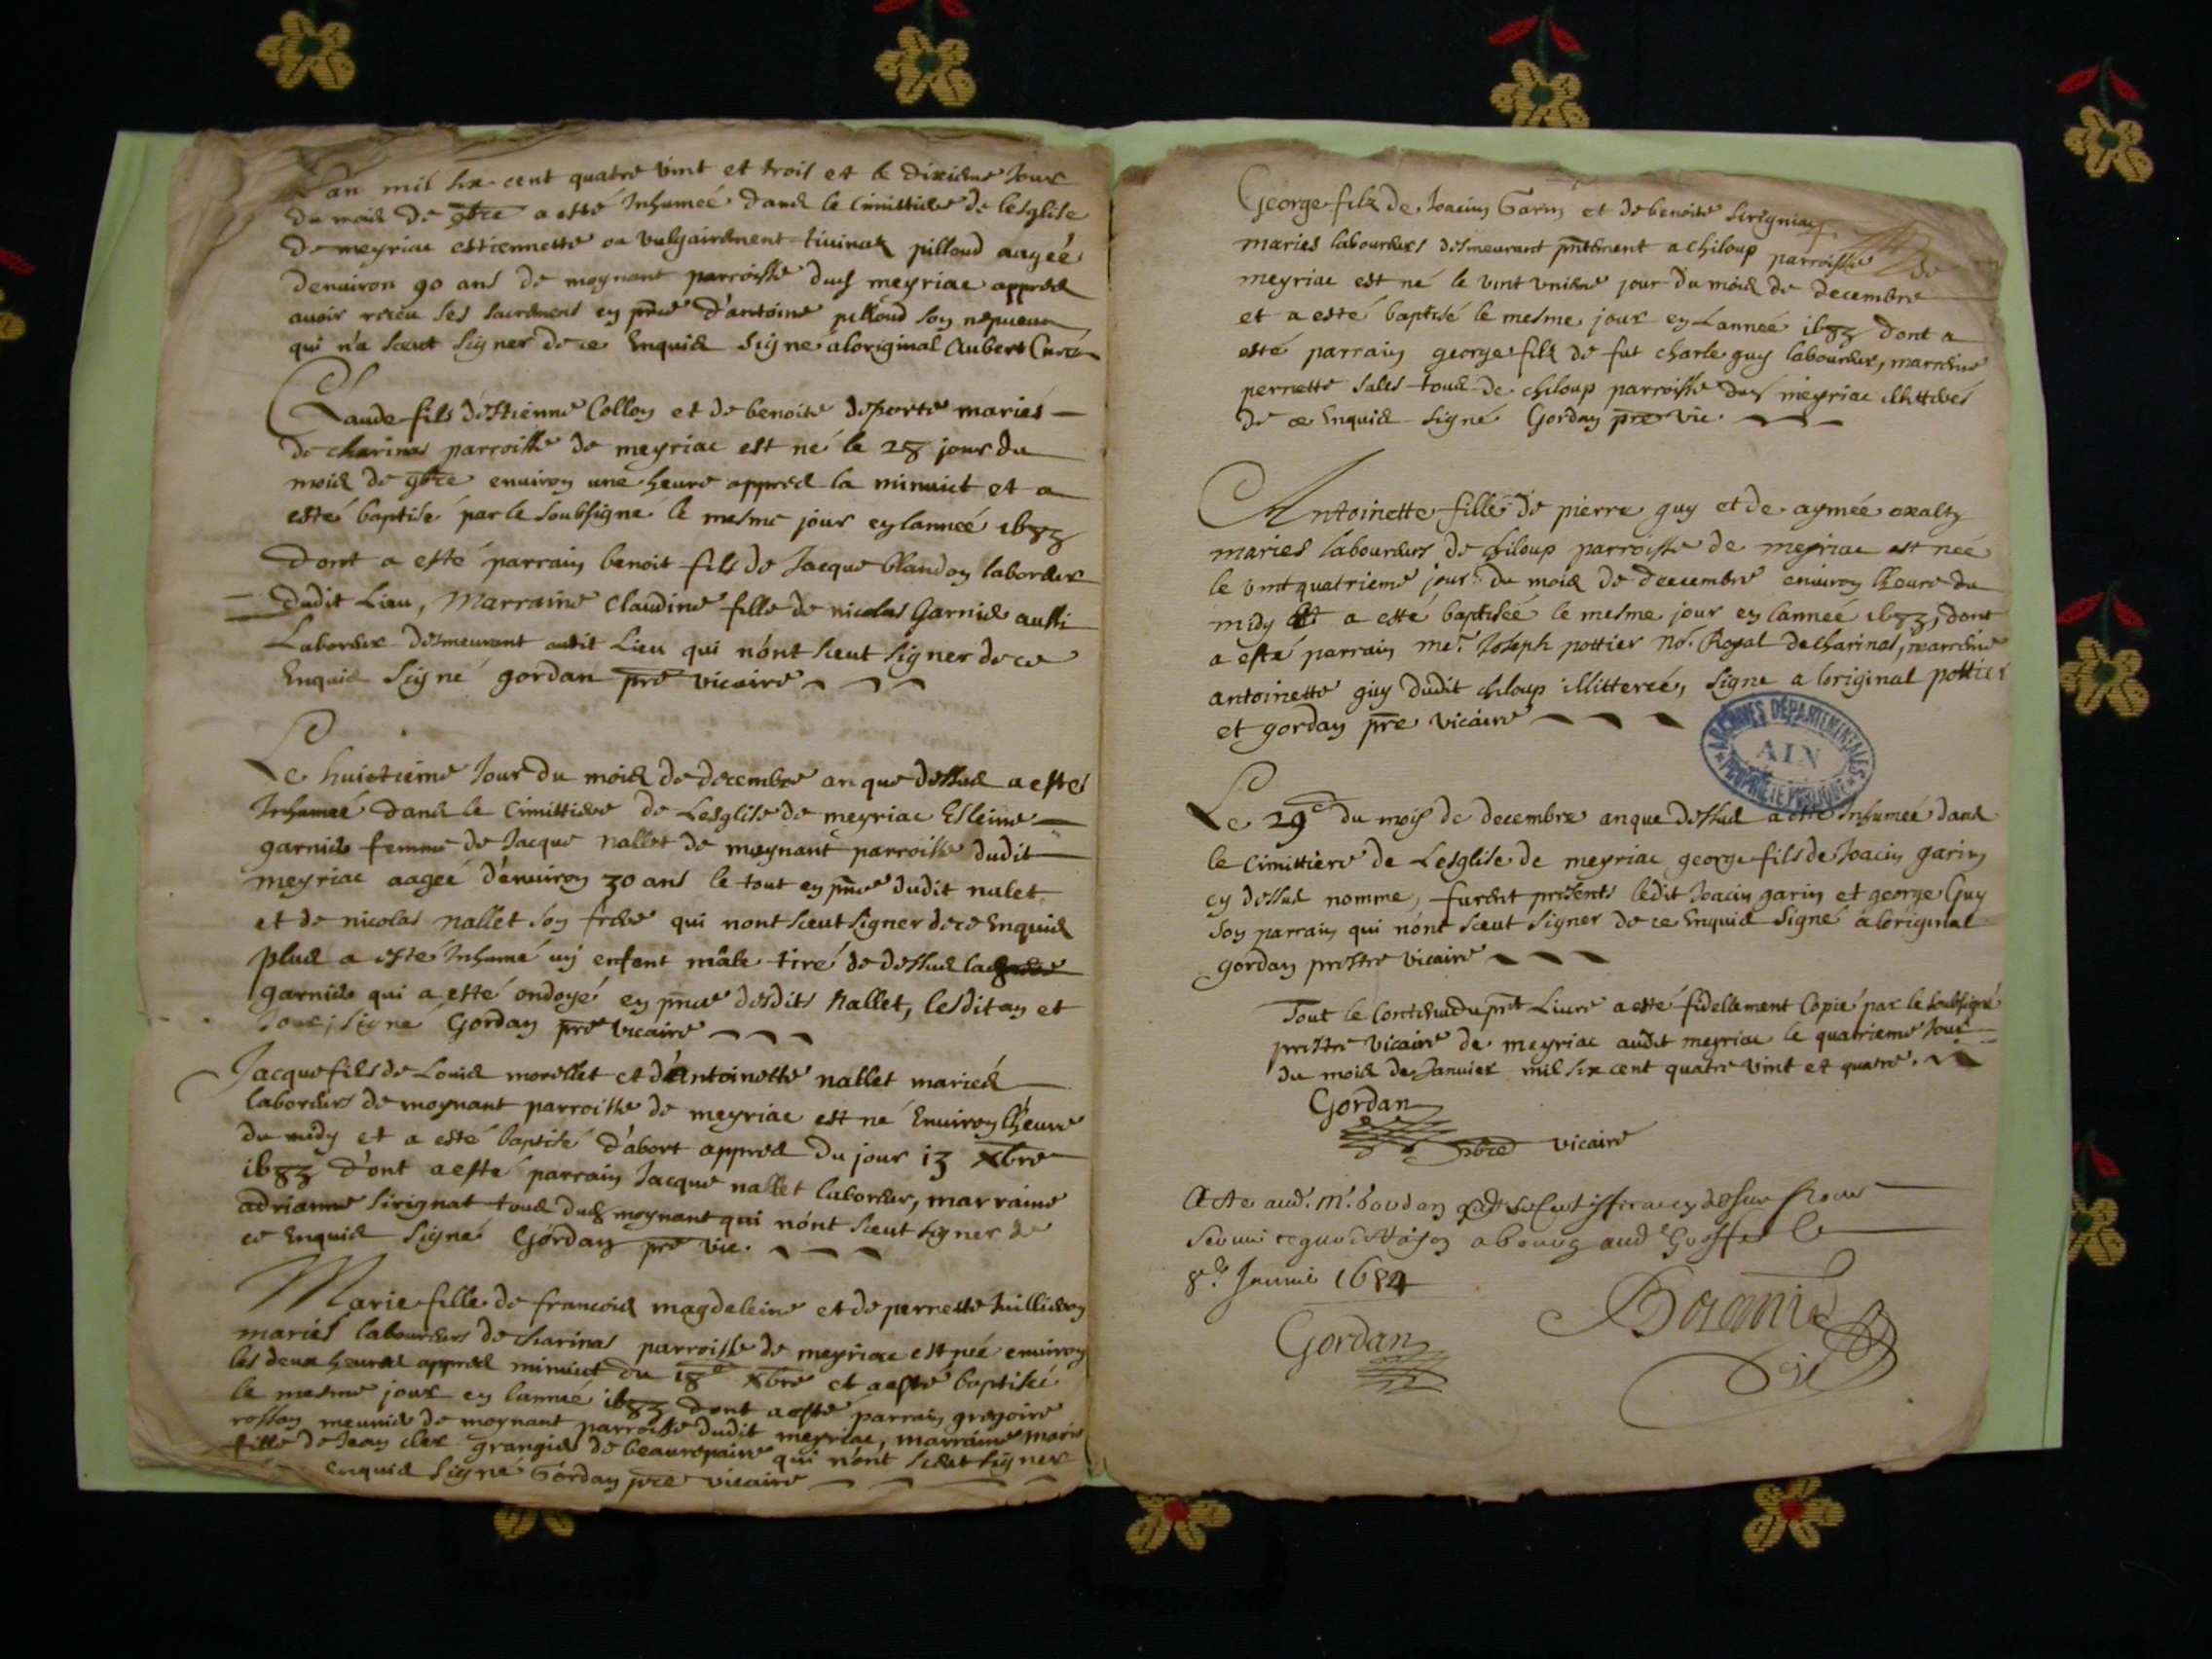 L'an mil six cent quatre vint et trois et le dixieme Jour
du mois de 9bre a esté Inhumeé dans le Cimittiere de lesglise
de meyriac estiennette ou vulgairement pilloud aageé
denuiron 90 ans de moynant parroisse dud meyriac appres
auoir receu ses sacremens en pnce d'antoine pilloud son nepueu
qui n'a sceut signer de ce Enquis signe a loriginal Aubert Curé
Claude fils d'estienne Collon et de benoite deporte mariés
de charinas parroisse de meyriac est né le 28 jour du
mois de 9bre enuiron une heure appres la minuict et a
esté baptisé par le soubsigné le mesme jour en lanneé 1683
dont a esté parrain benoit fils de Jacque blandon laboreur
dudit Lieu, Marraine Claudine fille de nicolas Garnier aussi
Laboreur desmeurant audit Lieu qui nónt sceut signer de ce
Enquis signé gordan pre vicaire
Le huictieme Jour du mois de decembre an que dessus a esté
Inhumeé dans le Cimittiere de Lesglise de meyriac
garnier femme de Jacque nallet de moynant parroisse dudit
meyriac aageé d'enuiron 30 ans le tout en pnce dudit nalet
et de nicolas nallet son frere qui nont sceut signer de ce Enquis
plus a esté Inhumé un enfent mâle tiré de dessus
garnier qui a esté ondoyé en pnce desdits Nallet, lesdit an et
Jour, signé Gordan pre vicaire
Jacque fils de Louis morellet et d'Antoinette nallet mariés
laboreurs de moynant parroisse de meyriac est né Enuiron lheure
du midy et a esté baptisé d'abort appres du jour 13 Xbre
1683 d'ont a esté parrain Jacque nallet laboreur, marraine
adrianne sirignat tous dud moynant qui nónt sceut signer de
ce Enquis signé Gordan pre vic.
Marie fille de francois magdeleine et de pernette
mariés laboureurs de charinas parroisse de meyriac est neé enuiron
les deux heures appres minuict du 18e Xbre et a esté baptiseé
le mesme jour en lanneé 1683 dont a esté parrain gregoire
rosson meunier de moynant parroisse dudit meyriac, marraine marie
fille de Jean clex grangier de beaurepaire qui nónt sceut signer
enquis signé Gordan pre vicaire
George filz de Joacin Garin et de benoite sirigniac
mariés laboureurs desmeurant pntement a chiloup parroisse de
meyriac est né le vint unieme jour du mois de decembre
et a esté baptisé le mesme jour en Lanneé 1683 dont a
esté parrain george filz de fut charle guy laboureur, marreine
pernette sales tous de chiloup parroisse dud meyriac
de ce Enquis signé Gordan pre vic.
Antoinette fille de pierre guy et de aymeé
mariés laboureurs de chiloup parroisse de meyriac est neé
le vint quatrieme jour du mois de decembre enuiron lheure du
midy et a esté baptiseé le mesme jour en lanneé 1683, dont
a esté parrain me. Joseph pottier No. Royal de charinas, marreine
antoinette guy dudit chiloup illittereé, signe a loriginal pottier
et gordan pre vicaire
ARCHIVES DÉPARTEMENTALES
AIN
PROPRIÉTÉ PUBLIQUE
Le 29e du mois de decembre an que dessus a esté Inhumeé dans
le Cimittiere de Lesglise de meyriac george fils de Joacin garin
cy dessus nomme, furent presents ledit Joacin garin et george Guy
son parrain qui nónt sceut signer de ce Enquis signé a loriginal
gordan prestre vicaire
Tout le contenu du pnt Liure a esté fidellement Copié par le soubsigné
prestre vicaire de meyriac audit meyriac le quatrieme Jour
du mois de Januier mil six cent quatre vint et quatre.
Gordan
pbre vicaire
Acte aud. Mr. Gordan
a bourg aud Greffe le
8e Januié 1684
Gordan